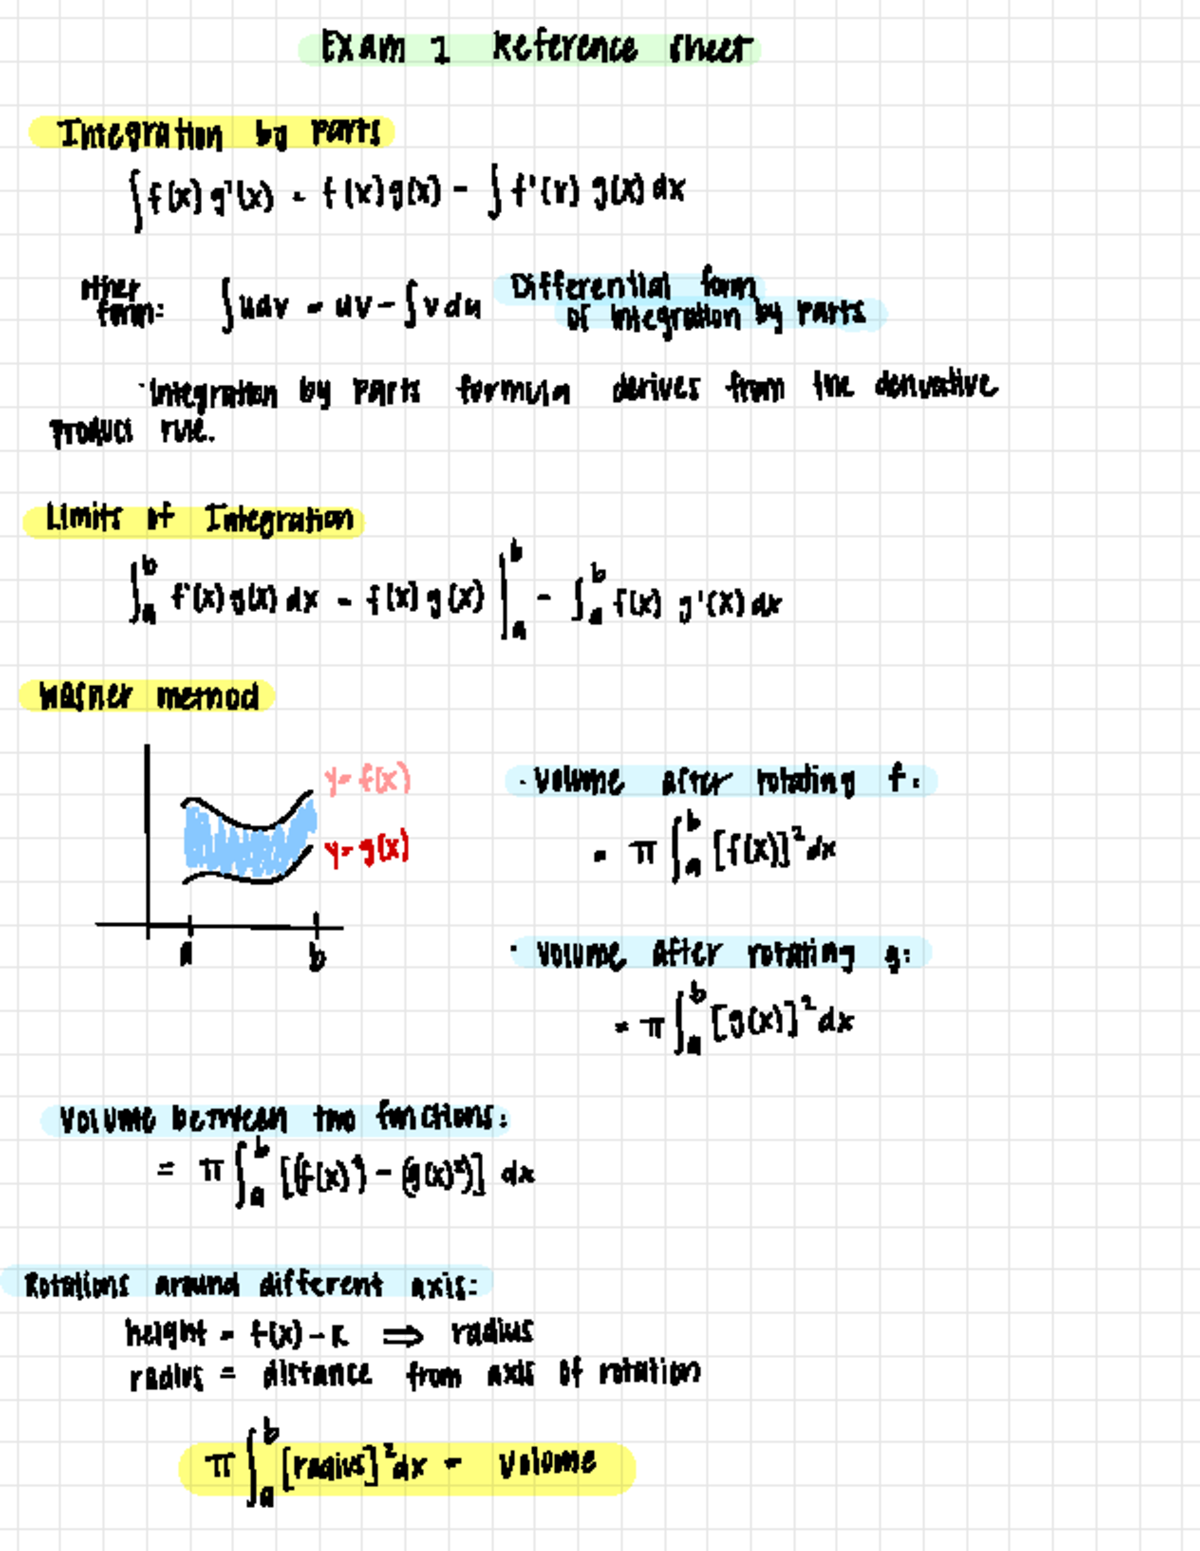 Exam 1 Reference Sheet
Integration by parts
∫f(x) g'(x) = f(x)g(x) - ∫ f'(x) g(x) dx
other form: ∫udv = uv - ∫v du
Differential form
of integration by parts
· Integration by parts formula derives from the derivative
product rule.
Limits of Integration
∫_a^b f'(x) g(x) dx = f(x) g(x) |_a^b - ∫_a^b f(x) g'(x) dx
Washer method
y = f(x)
y = g(x)
a b
· Volume after rotating f:
= π ∫_a^b [f(x)]² dx
· Volume after rotating g:
= π ∫_a^b [g(x)]² dx
Volume between two functions:
= π ∫_a^b [(f(x)²) - (g(x)²)] dx
Rotations around different axis:
height = f(x) - k ⇒ radius
radius = distance from axis of rotation
π ∫_a^b [radius]² dx = volume